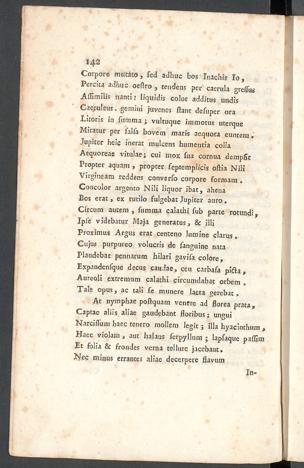 142
Corpore mutato, sed adhuc bos Inachis Io,
Percita adhuc oestro, tendens per caerula gressus
Assimilis nanti: liquidis color additus undis
Caeruleus. gemini juvenes stant desuper ora
Litoris in summa; vultuque immotus uterque
Miratur per salsa bovem maris aequora euntem.
Jupiter heic inerat mulcens humentia colla
Aequoreae vitulae; cui mox sua cornua dempsit
Propter aquam, propter septemplicis ostia Nili
Virgineam reddens converso corpore formam.
Concolor argento Nili liquor ibat, ahena
Bos erat, ex rutilo fulgebat Jupiter auro.
Circum autem, summa calathi sub parte rotundi,
Ipse videbatur Maja generatus, & illi
Proximus Argus erat centeno lumine clarus.
Cujus purpureo volucris de sanguine nata
Plaudebat pennarum hilari gavisa colore,
Expandensque decus caudae, ceu carbasa picta,
Aureoli extremum calathi circumdabat orbem.
Tale opus, ac tali se munere laeta gerebat.
At nymphae postquam ventre ad florea prata,
Captae aliis aliae gaudebant floribus; ungui
Narcissum haec tenero mollem legit; illa hyacinthum,
Haec violam, aut halans serpyllum; lapsaque passim
Et folia & frondes verna tellure jacebant.
Nec minus errantes aliae decerpere flavum
In-